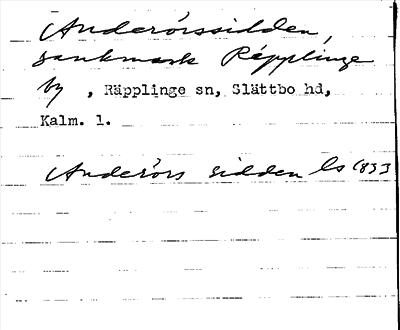 Anderörssidden,
sankmark Räpplinge
by, Räpplinge sn, Slättbo hd,
Kalm. l.
Anderörs sidden ls 1833